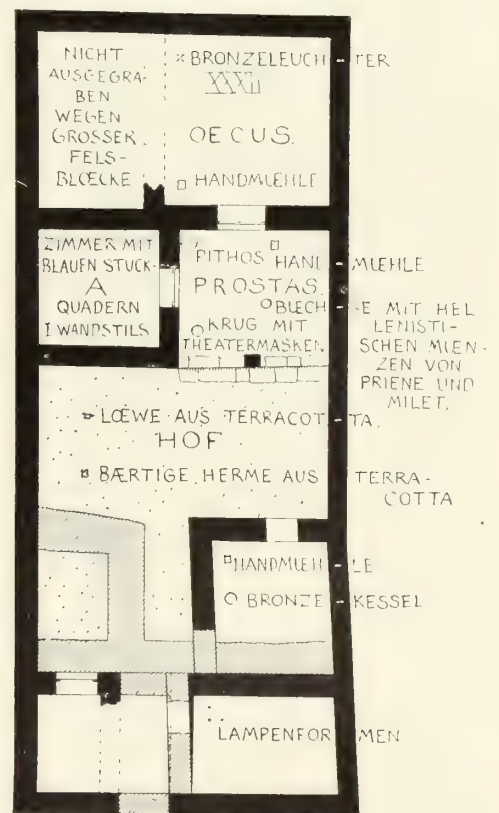 NICHT
AUSGEGRA-
BEN
WEGEN
GROSSER
FELS-
BLŒCKE
×BRONZELEUCH-TER
XXXII
OECUS.
HANDMUEHLE
ZIMMER MIT
BLAUEN STUCK-
A
QUADERN
I WANDSTILS
PITHOS HAND-MUEHLE
PROSTAS.
BLECH-E MIT HEL
LENISTI-
SCHEN MUEN-
ZEN VON
PRIENE UND
MILET.
KRUG MIT
THEATERMASKEN
LŒWE AUS TERRACOT-TA.
HOF
BÆRTIGE HERME AUS TERRA-
COTTA
HANDMUEH-LE
BRONZE-KESSEL
LAMPENFOR-MEN